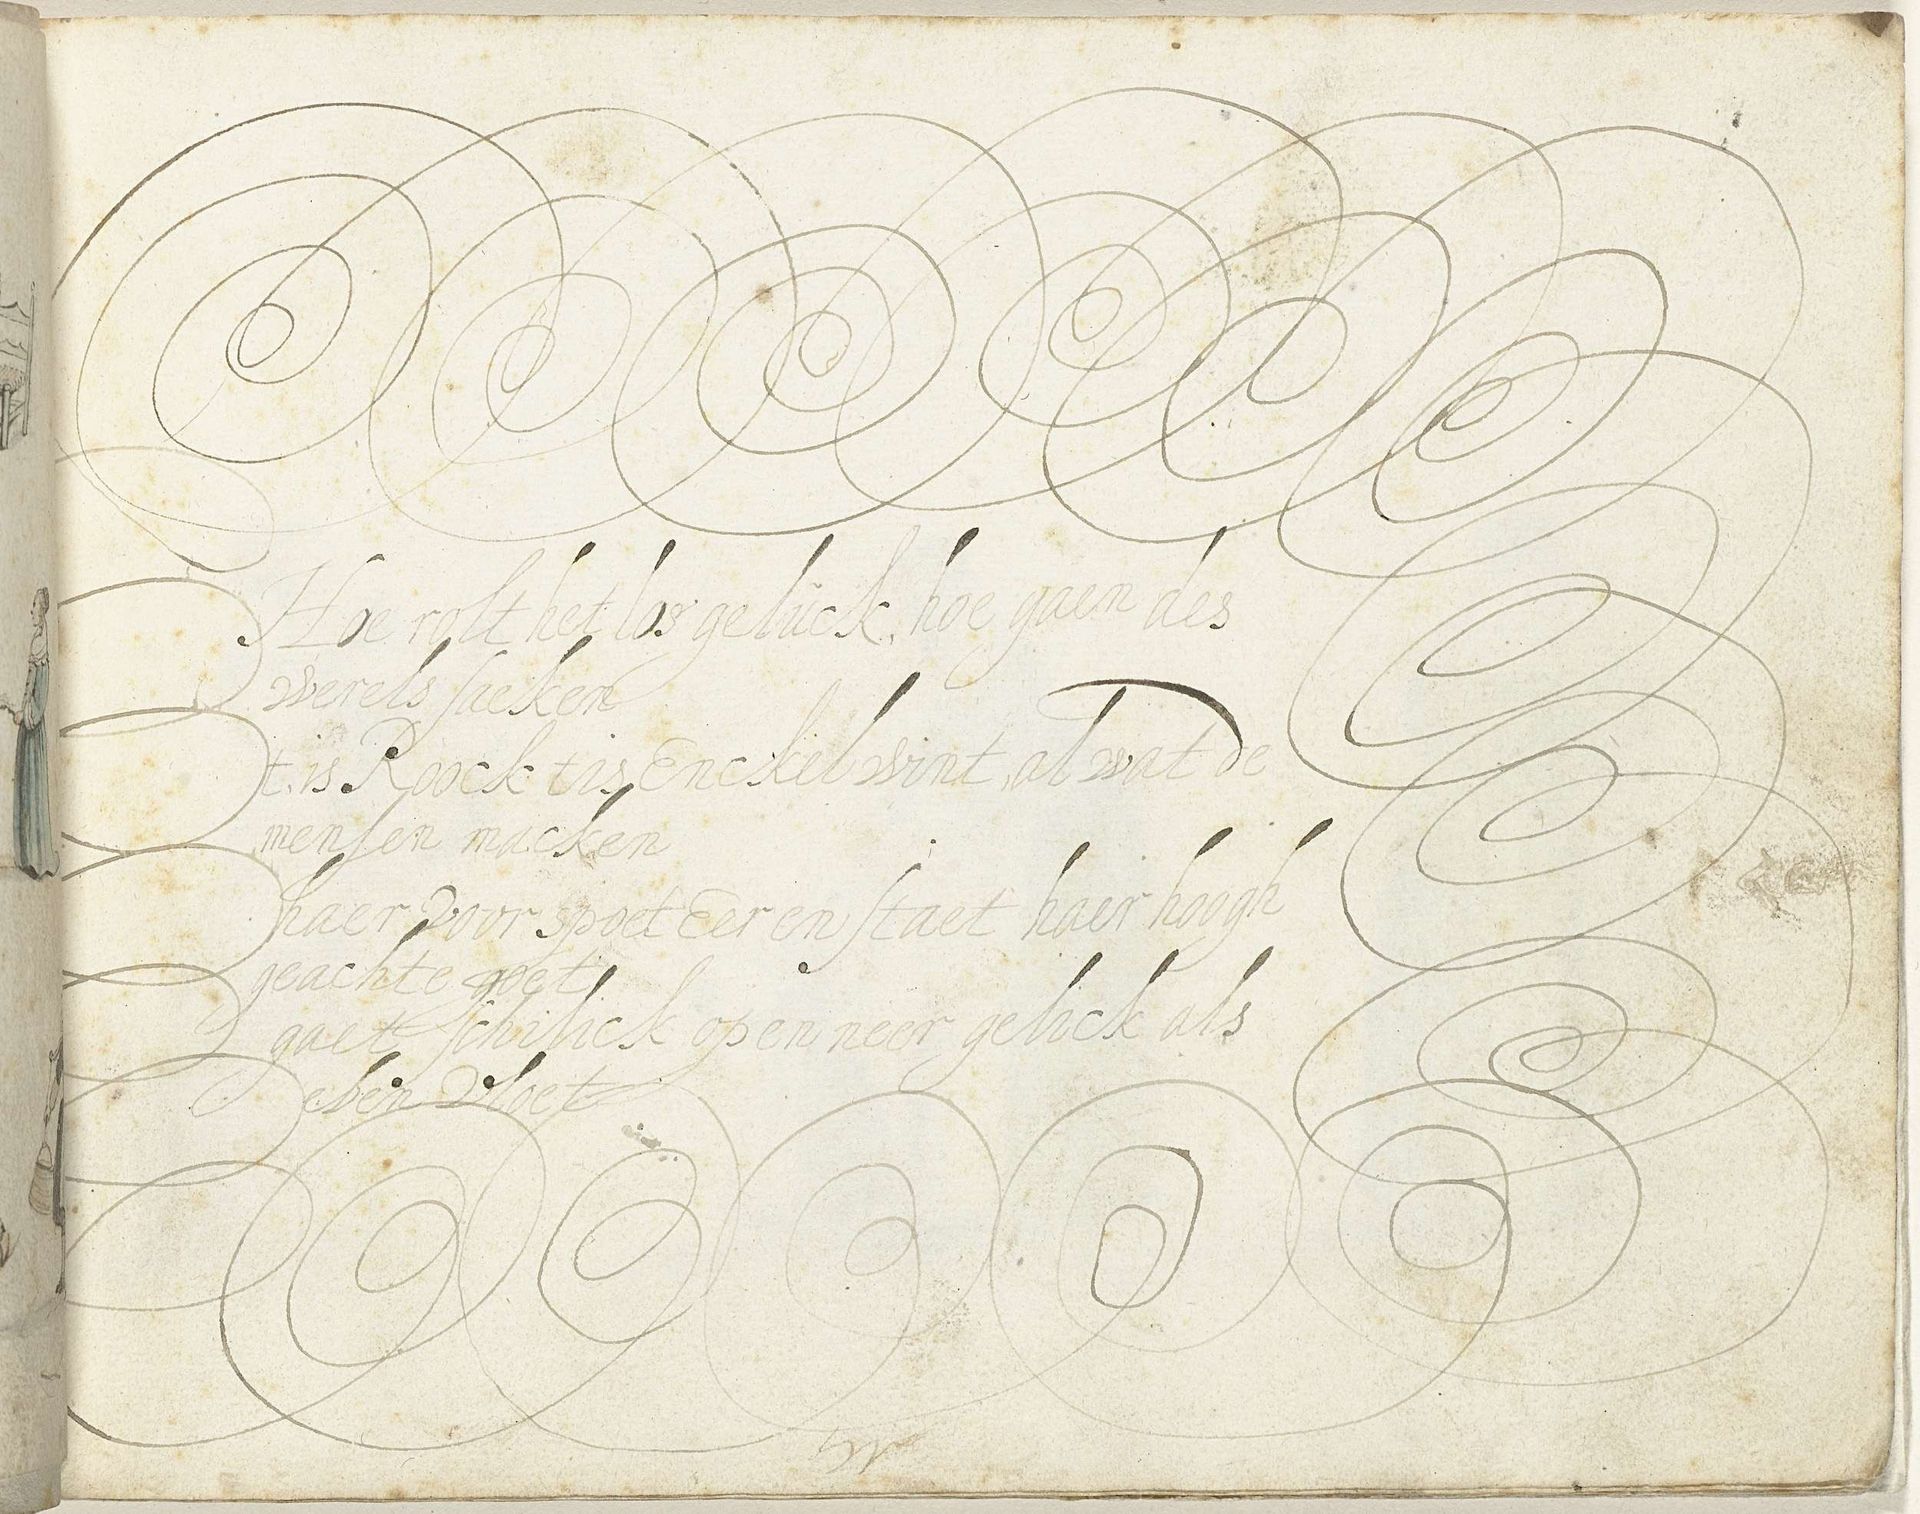 Hoe rolt het los gelück, hoe gaen des
werels saeken
t, is Roock t is Enckel wint, al wat De
mensen macken
haer voor spoet Eer en staet haer hoogh
geachte goet
gaet schilick op en neer gelick als
eb en vloet